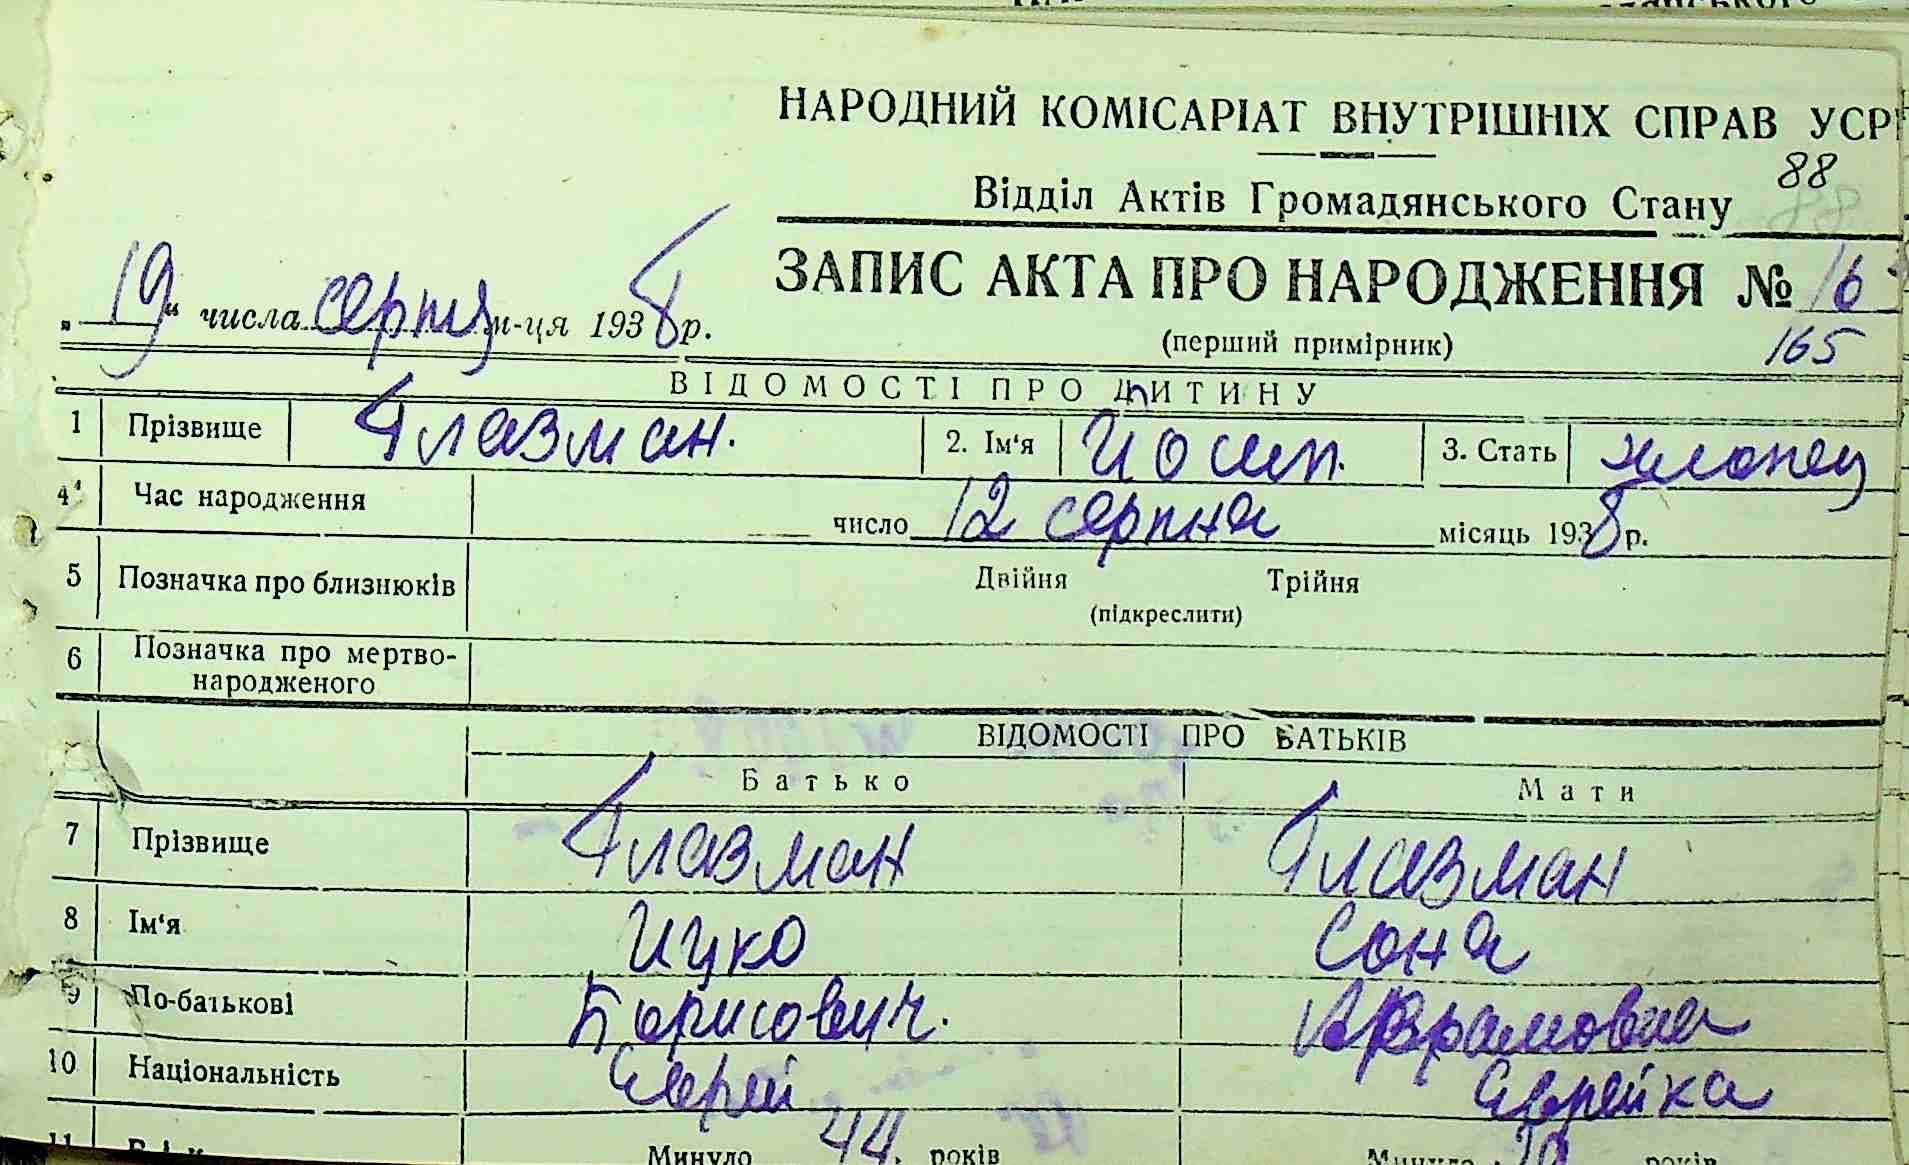 НАРОДНИЙ КОМІСАРІАТ ВНУТРІШНІХ СПРАВ УСР
88
Відділ Актів Громадянського Стану
88
ЗАПИС АКТА ПРО НАРОДЖЕННЯ № 16
„19“ числа серпня м-ця 1938 р.
(перший примірник)
165
ВІДОМОСТІ ПРО ДИТИНУ
1 Прізвище Глазман. 2. Ім‘я Йосип. 3. Стать хлопец
4 Час народження число 12 серпня місяць 1938 р.
5 Позначка про близнюків Двійня Трійня
(підкреслити)
6 Позначка про мертво-
народженого
ВІДОМОСТІ ПРО БАТЬКІВ
Батько Мати
7 Прізвище Глазман Глазман
8 Ім‘я Ицко Соня
9 По-батькові Борисович. Аврамовна
10 Національність Єврей Єврейка
11 Минуло 44. років Минуло років